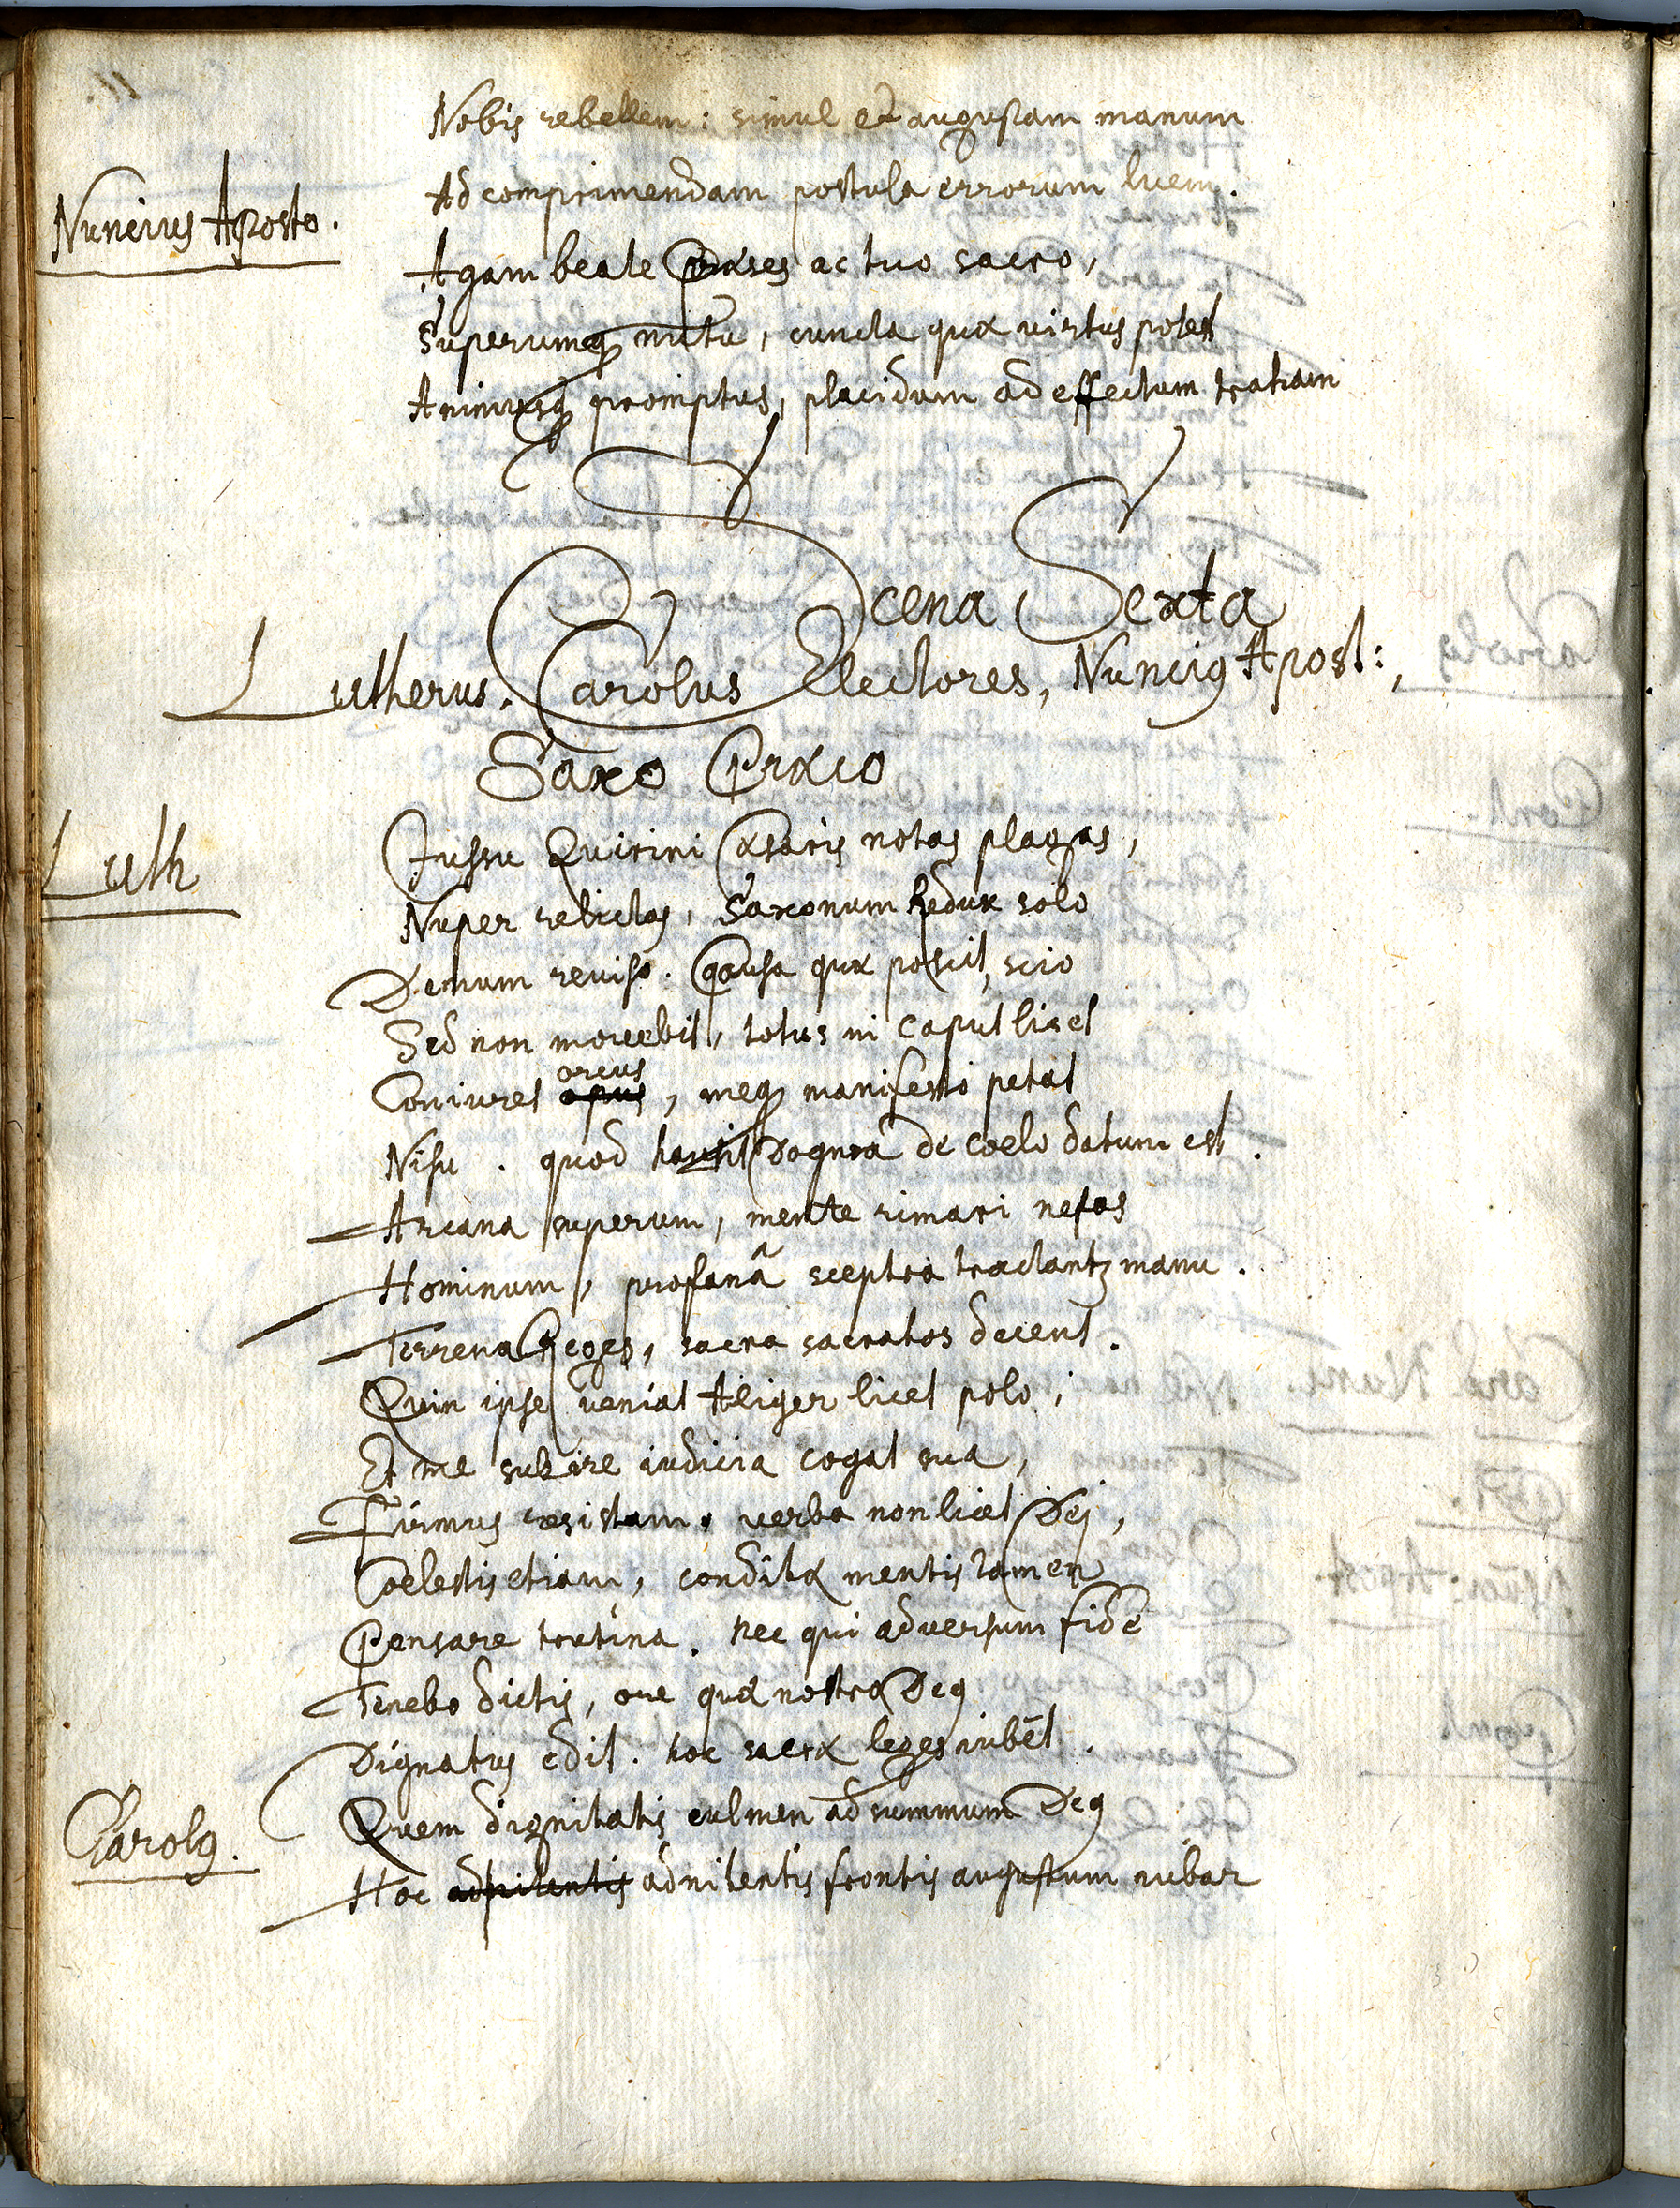 Nobis rebellem: simul et augustam manum
Ad comprimendam postula errorum luem.
Nuncius Aposto.
Agam beate Præses ac tuo sacro,
Superumq nutu, cuncta quæ virtus potest
Animusq promptus, placidum ad effectum traham
Scena Sexta
Lutherus. Carolus Electores, Nunciq Apost:,
Saxo Præco
Luth
Jussu Quirini Cæsaris notas plagas,
Nuper relictas, Saxonum Redux solo
Demum reviso. Causa quæ poscit, scio
Sed non movebit, totus in caput licet
orcus
Coniuret opus, meq manifesto petat
Nisu. quod hausit Dogma de coelo datum est.
Arcana superum, mente rimari nefas
Hominum, profanâ sceptra tractantz manu.
Terrena Reges, sacra sacratos decent.
Quin ipse veniat Aliger licet polo,
Et me subire iudicia cogat sua,
Firmus resistam. verba non licet Dei,
Coelestis etiam, conditæ mentis tamen
Pensare trutina. nec qui adversum fidē
Tenebo dictis, ore quæ nostro Deq
Dignatus edit. hoc sacræ leges iubēt.
Carolq.
Quem dignitatis culmen ad summum Deq
Hoc adnitentis adnitentis frontis augustum iubar